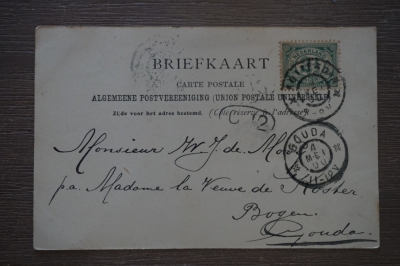 BRIEFKAART
CARTE POSTALE
ALGEMEENE POSTVEREENIGING (UNION POSTALE UNIVERSELLE)
Zijde voor het adres bestemd. (Côté réservé à l'adresse)
GOUDA
4
11-12V
Monsieur W. J. de Mol
pa. Madame la Veuve de Koster
Bogen
Gouda